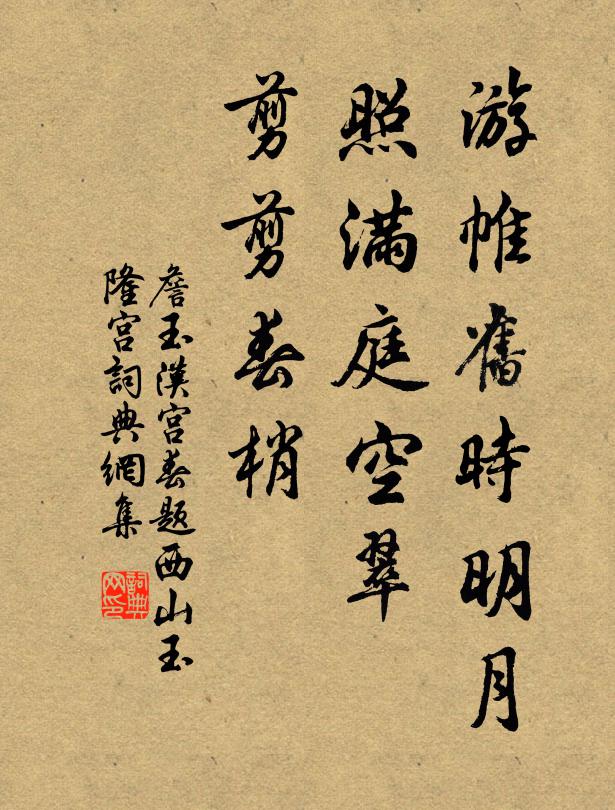 游帷舊時明月
照滿庭空翠
剪剪春梢
詹玉漢宮春題西山玉
隆宮詞典網集
詞典网印